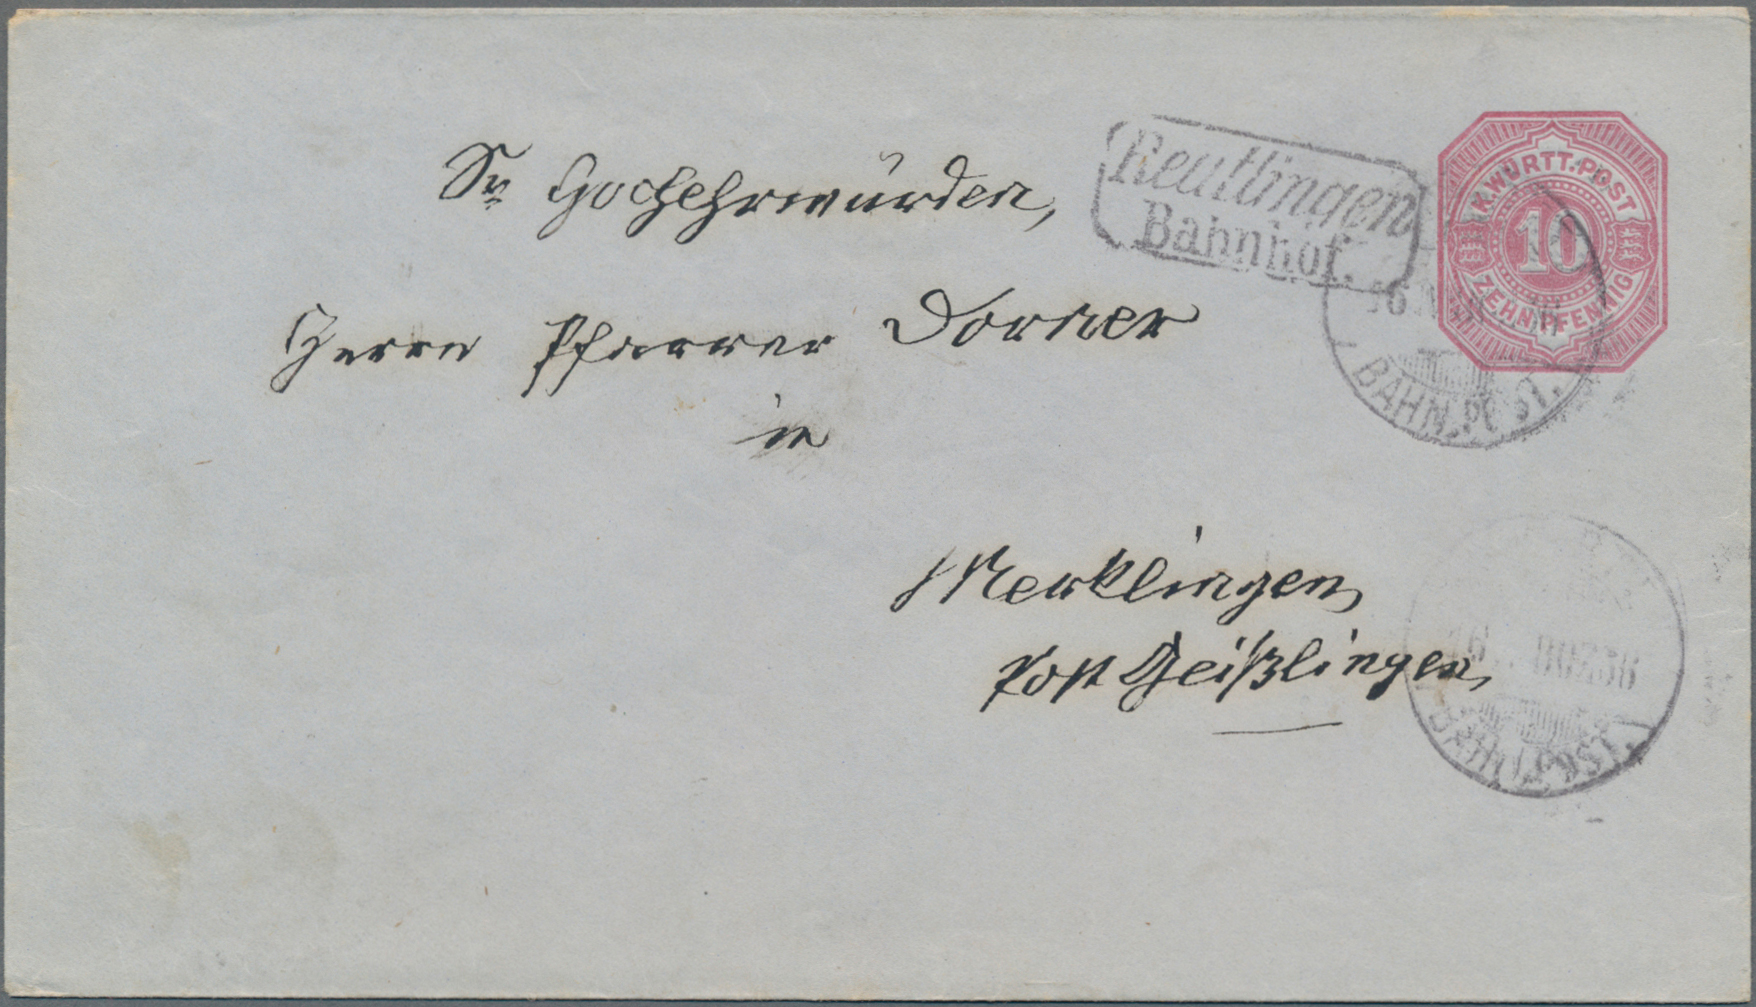 Sr Hochehrwürden,
Herrn Pfarrer Dorner
in
Merklingen,
Post Geißlingen,
Reutlingen
Bahnhof.
K.WÜRTT.POST
10
ZEHN PFENNIG
16
BAHN.POST.
BAHN.POST.